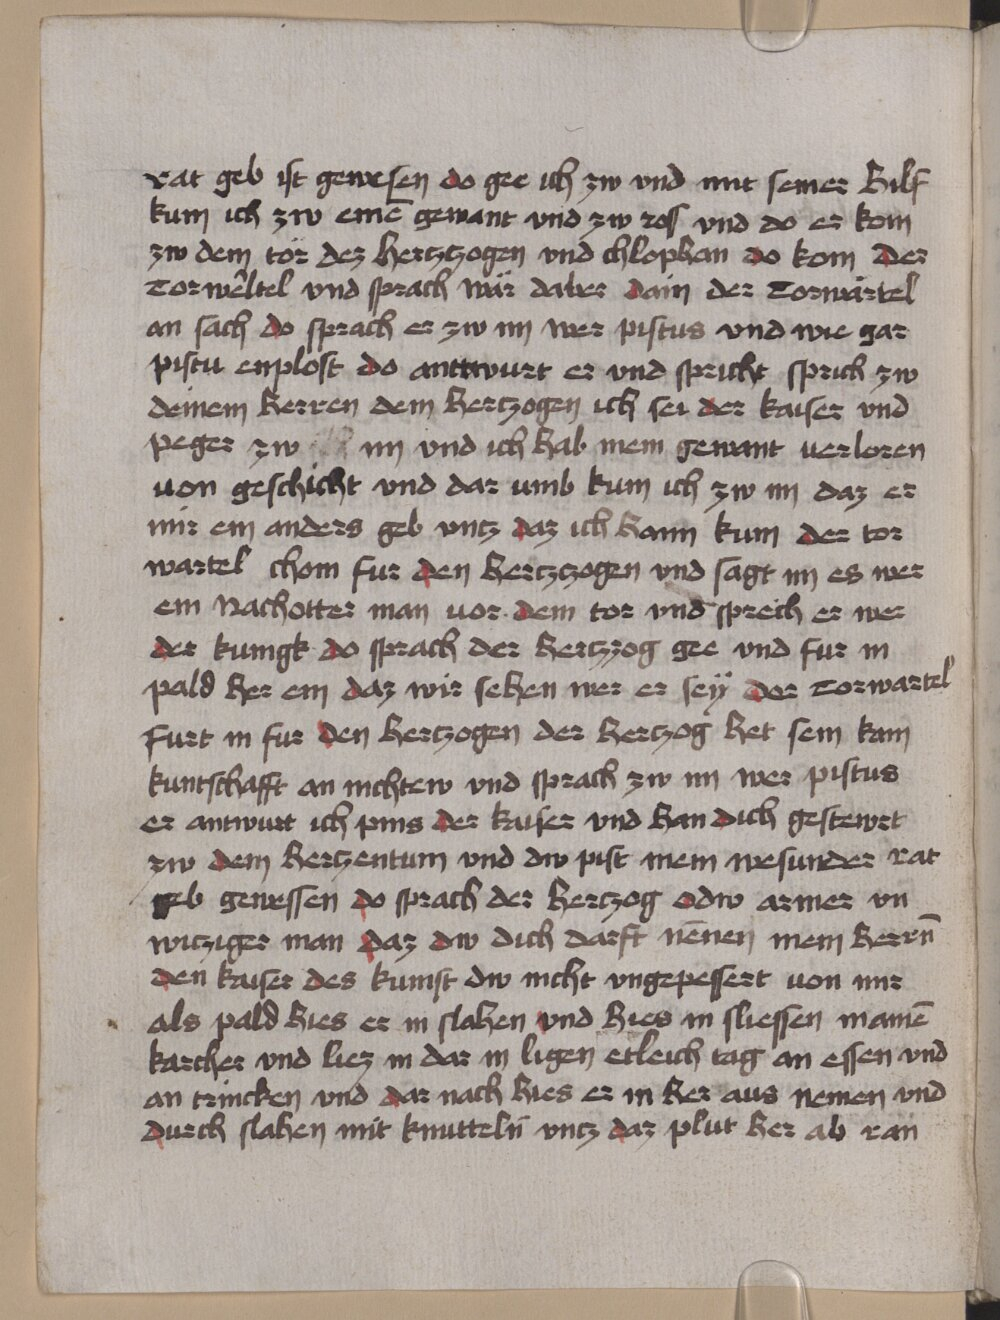 rat geb ist gewesen do gee ich zw vnd mit seiner hilf
kum ich zw einē gewant vnd zw ross vnd do er kom
zw dem tör dez hertzzogen vnd chlophan do kom der
Torwêltel vnd sprach wär da der dain der Torwärtel
an sach do sprach er zw im wer pistus vnd wie gar
pistu enplost do anttwurt er vnd spricht sprich zw
deinem herren dem hertzogen ich sei der kaiser vnd
peger zw im vnd ich hab mein gewant verloren
von geschicht vnd dar vmb kum ich zw im daz er
mir ein anders geb vntz daz ich haim kum der tor
wartel chom fur den hertzzogen vnd sagt im es wer
ein Nachotter man vor dem tor vnd sprech er wer
der kunigk do sprach der hertzzog gee vnd fur in
pald her ein daz wir sehen wer er seÿ der Torwartel
furt in fur den hertzogen der hertzog het sein kain
kuntschafft an nichtew vnd sprach zw im wer pistus
er antwurt ich pins der kaiser vnd han dich gestewrt
zw dem hertzentum vnd dw pist mein wesunder rat
geb gewessen do sprach der hertzog o dw armer vn
witziger man daz dw dich darft nēnen mein herrn̄
den kaiser des kumst dw nicht vngepessert von mir
als pald hies er in slahen vnd hies in sliessen in ainē
karcher vnd liez in dar in ligen etleich tag an essen vnd
an trincken vnd dar nach hies er in her aus nemen vnd
durch slahen mit knutteln̄ vntz daz plut her ab ran